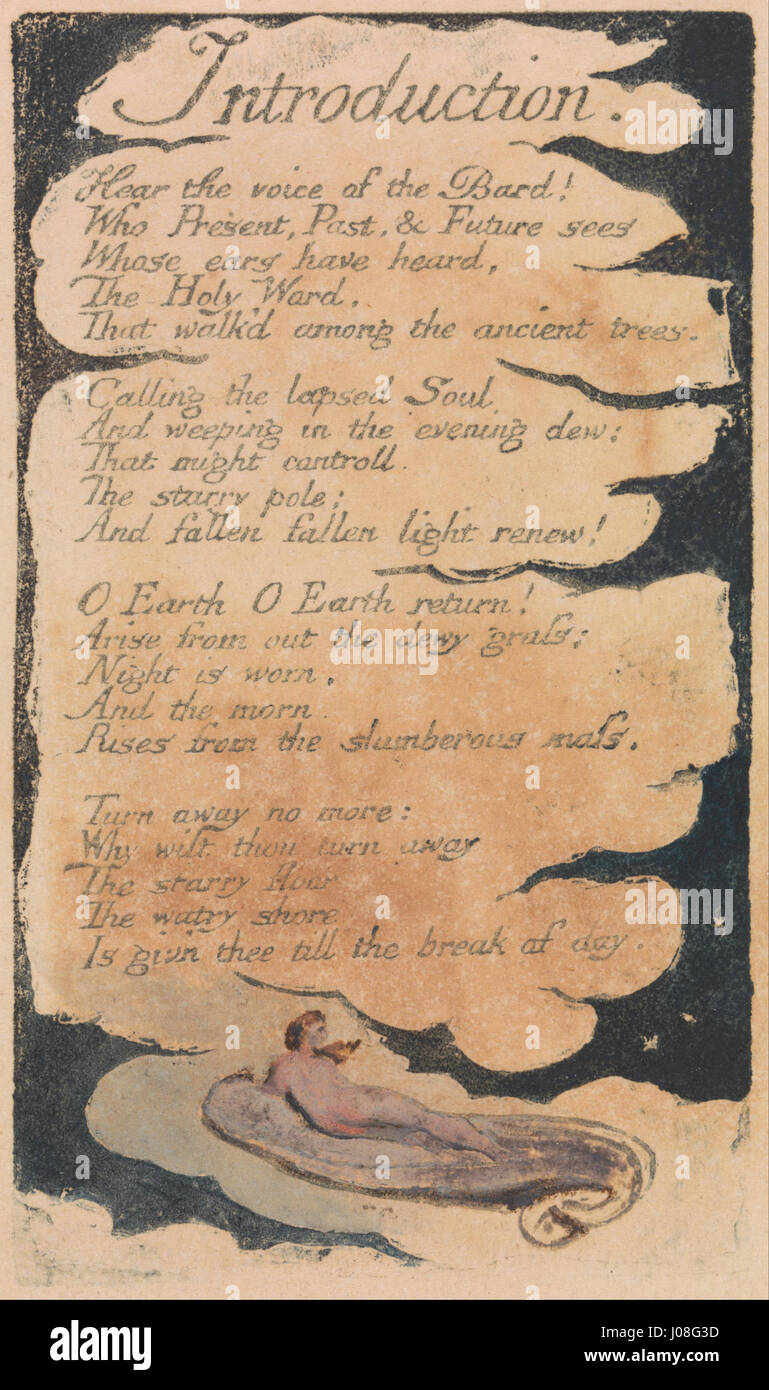 Introduction.
Hear the voice of the Bard!
Who Present, Past, & Future sees
Whose ears have heard,
The Holy Word,
That walk'd among the ancient trees.
Calling the lapsed Soul
And weeping in the evening dew:
That might controll.
The starry pole;
And fallen fallen light renew!
O Earth O Earth return!
Arise from out the dewy graſs;
Night is worn,
And the morn
Rises from the slumberous maſs.
Turn away no more:
Why wilt thou turn away
The starry floor
The watry shore
Is giv'n thee till the break of day.
alamy
a
alamy
Image ID: J08G3D
www.alamy.com